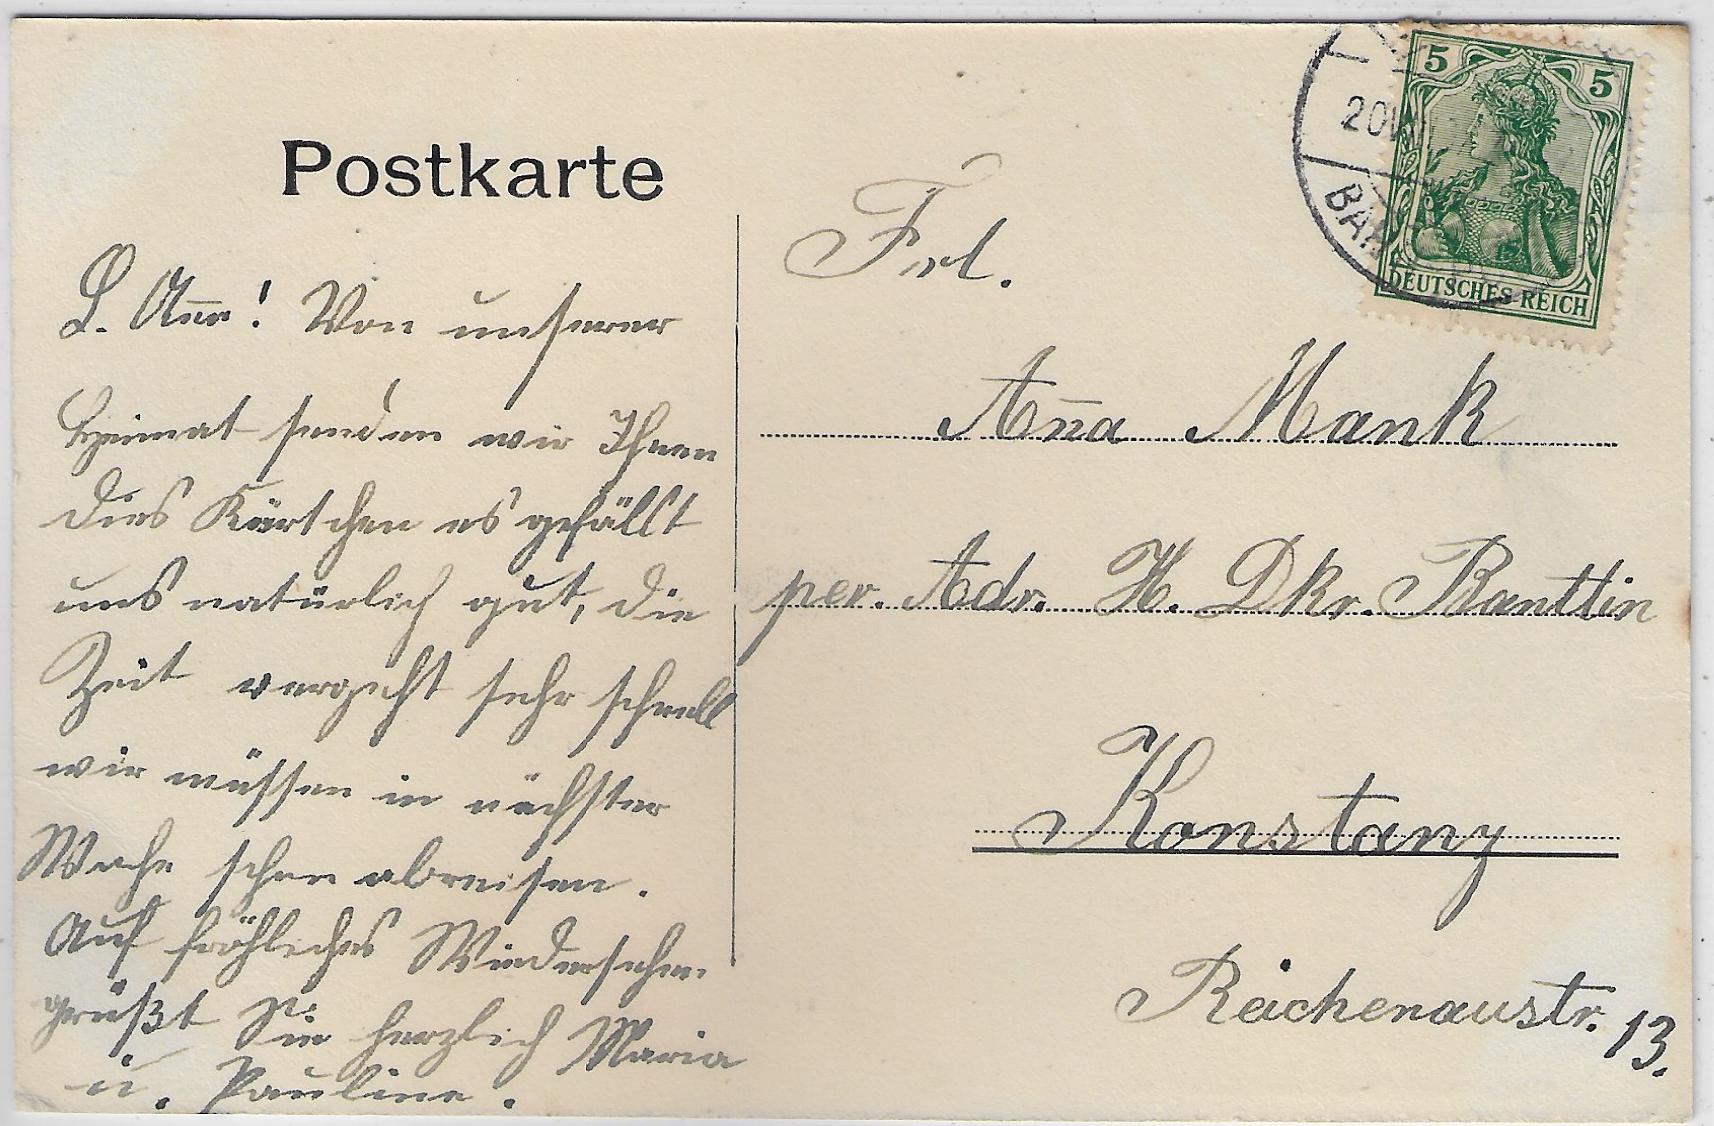 Postkarte
L. Anna! Von unserer
Heimat senden wir Ihnen
dies Kärtchen es gefällt
uns natürlich gut, die
Zeit vergeht sehr schnell
wir müssen in nächster
Woche schon abreisen.
Auf fröhliches Wiedersehen
grüßt Sie herzlich Maria
u. Pauline.
5 5
20
BAH
DEUTSCHES REICH
Frl.
Anna Mank
per. Adr. H. Dkr.
Konstanz
Reichenaustr. 13.